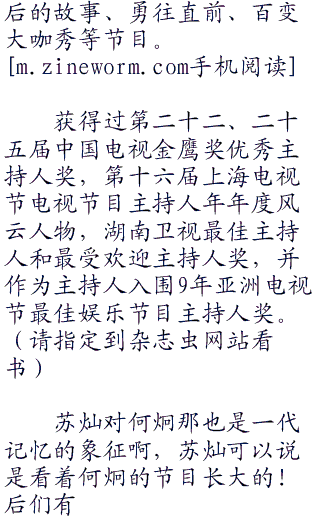 后的故事、勇往直前、百变
大咖秀等节目。
[m.zineworm.com手机阅读]
获得过第二十二、二十
五届中国电视金鹰奖优秀主
持人奖，第十六届上海电视
节电视节目主持人年年度风
云人物，湖南卫视最佳主持
人和最受欢迎主持人奖，并
作为主持人入围9年亚洲电视
节最佳娱乐节目主持人奖。
（请指定到杂志虫网站看
书）
苏灿对何炯那也是一代
记忆的象征啊，苏灿可以说
是看着何炯的节目长大的！
后们有